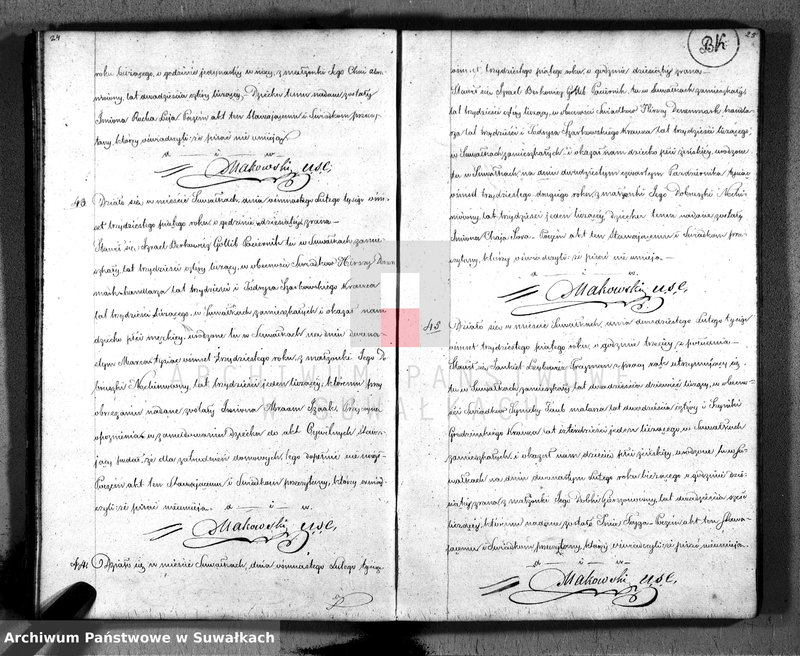 24
roku bieżącego, o godzinie jedynastej w nocy, z małżonki Jego Chai
lat dwadzieścia cztery liczącej, Dziecku temu nadane zostały
Imiona Rocha Leja Poczem akt ten Stawającemu i Świadkom przeczy-
tany, którzy oświadczyli iż pisać nie umieją
a — i — w
Makowski USC,
43 Działo się, w mieście Suwałkach, dnia ósmnastego Lutego tysiąc ośm-
set trzydziestego piątego roku o godzinie dziesiątej zrana —
Stawił się, Izrael Berkowicz Gotlib Paciernik tu w Suwałkach zamie-
szkały, lat trzydzieści cztery liczący, w obecności Świadków Hirszy Deren-
mark handlarza lat trzydzieści i Judzyra Szarkowskiego Krawca
lat trzydzieści liczącego, w Suwałkach zamieszkałych i okazał nam
dziecko płci męzkiej, urodzone tu w Suwałkach na dniu dwuna-
stym Marca tysiąc ośmset trzydziestego roku, z małżonki Jego
Nochimowny, lat trzydzieści jeden liczącej, któremu przy
obrzezaniu nadane zostały Imiona Abraam Izaak, Przyczyna
opoznienia w zameldowaniu Dziecka do akt Cywilnych Stawa-
jący podał, że dla zatrudnień domowych, tego dopełnić nie mógł
Poczem akt ten Stawającemu i Świadkom przeczytany, którzy oświad-
czyli iż pisać nieumieją. a — i — w.
Makowski USC,
44 Działo się w mieście Suwałkach, dnia ósmnastego Lutego tysiąc-
BK
25
ośmset trzydziestego piątego roku, o godzinie dziesiątej zrana —
Stawił się Izrael Berkowicz Gotlib Paciernik, tu w Suwałkach zamieszkały,
lat trzydzieści cztery liczący, w obecności Świadków Hirszy Derenmark handla-
rza lat trzydzieści i Judzyra Szarkowskiego Krawca lat trzydzieści liczącego,
w Suwałkach zamieszkałych, i okazał nam dziecko płci żeńskiej, urodzone
tu w Suwałkach, na dniu dwudziestym czwartym Października tysiąc
ośmset trzydziestego drugiego roku, z małżonki Jego Dobruszki Nochi-
mowny, lat trzydzieści jeden liczącej, dziecku temu nadane zostały
Imiona Chaja Sora. Poczem akt ten Stawającemu i Świadkom prze-
czytany, którzy oświadczyli iż pisać nie umieją —
a — i — w.
Makowski USC,
45 Działo się w mieście Suwałkach, dnia dwudziestego Lutego tysiąc
ośmset trzydziestego piątego roku, o godzinie trzeciej z południa —
Stawił się Jankiel Leybowicz z pracy rąk utrzymujący się
tu w Suwałkach zamieszkały, lat dwadzieścia dziewięć liczący, w obecno-
ści Świadków malarza lat dwadzieścia cztery i
Grodzieńskiego Krawca lat czterdzieści jeden liczącego, w Suwałkach
zamieszkałych, i okazał nam dziecię płci żeńskiej, urodzone tu w Su-
wałkach na dniu dwunastym Lutego roku bieżącego o godzinie dzie-
siątej zrana, z małżonki Jego lat dwadzieścia sześć
liczącej, któremu nadane zostało Imie Poczem akt ten Stawa-
jącemu i Świadkom przeczytany, którzy oświadczyli iż pisać nieumieją.
a — i — w
Makowski USC,
ARCHIWUM PAŃSTWOWE
W SUWAŁKACH
Archiwum Państwowe w Suwałkach